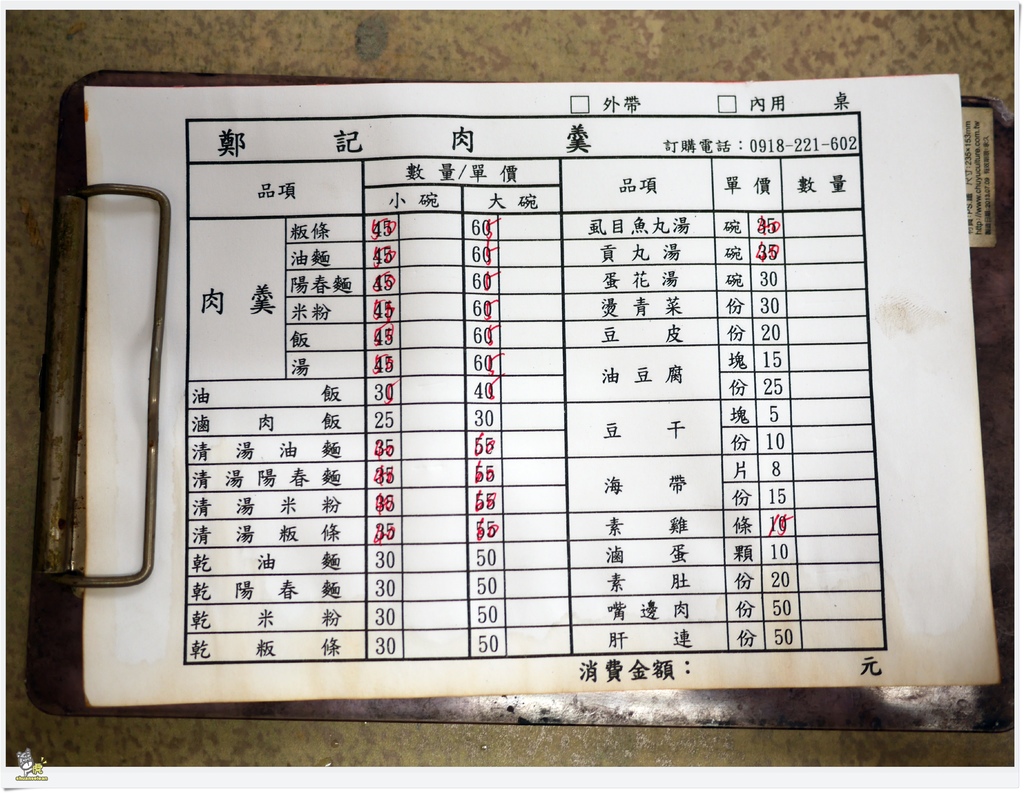 □ 外帶 □ 內用 桌
鄭記肉羹 訂購電話：0918-221-602
品項 數量/單價 品項 單價 數量
小碗 大碗
肉羹
粄條 45 50 60 5 虱目魚丸湯 碗 35 40
油麵 45 50 60 5 貢丸湯 碗 35 40
陽春麵 45 50 60 5 蛋花湯 碗 30
米粉 45 50 60 5 燙青菜 份 30
飯 45 50 60 5 豆皮 份 20
湯 45 50 60 5 油豆腐 塊 15
油飯 30 5 40 5 份 25
滷肉飯 25 30 豆干 塊 5
清湯油麵 35 40 55 60 份 10
清湯陽春麵 35 40 55 60 海帶 片 8
清湯米粉 35 40 55 60 份 15
清湯粄條 35 40 55 60 素雞 條 10 15
乾油麵 30 50 滷蛋 顆 10
乾陽春麵 30 50 素肚 份 20
乾米粉 30 50 嘴邊肉 份 50
乾粄條 30 50 肝連 份 50
消費金額： 元